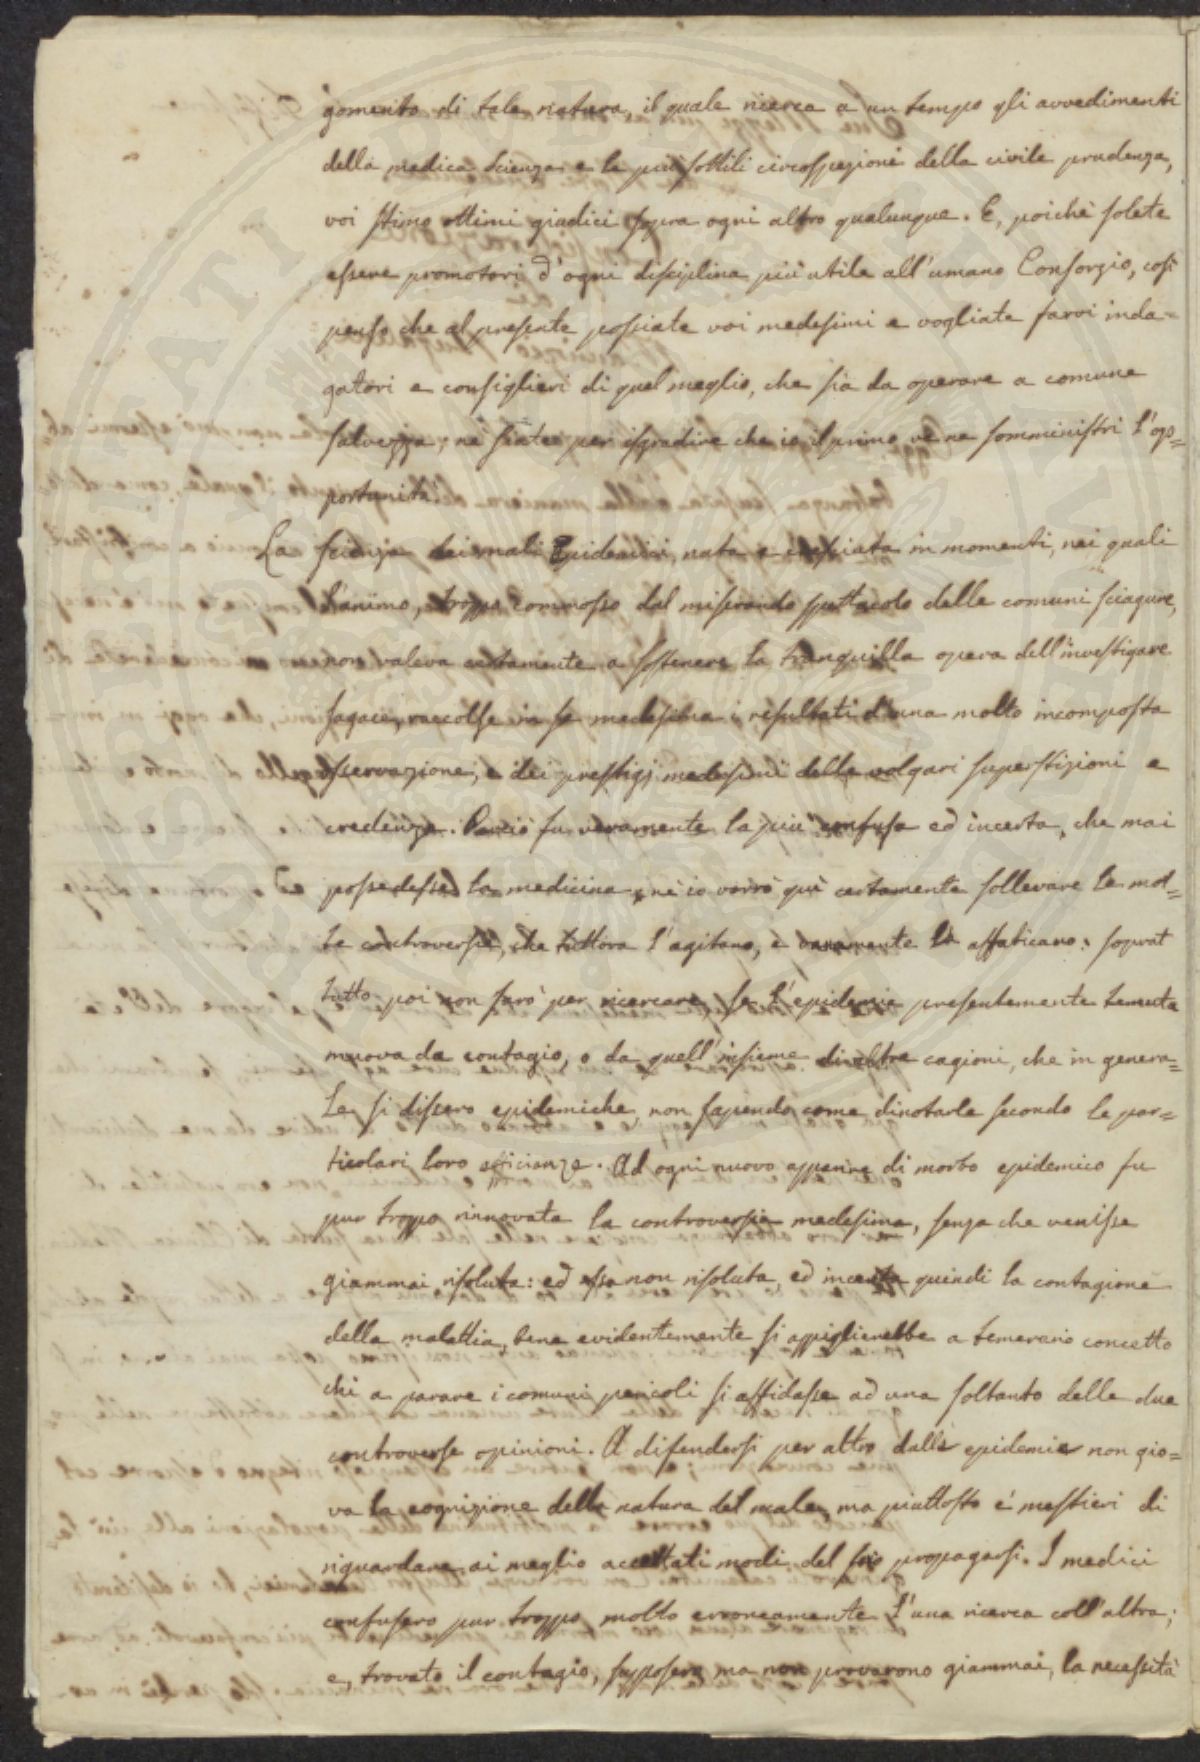 gomento di tale natura, il quale ricerca a un tempo gli avvedimenti
della medica scienza e le più sottili circospezioni della civile prudenza,
voi stimo ottimi giudici sopra ogni altro qualunque. E, poichè solete
essere promotori d'ogni disciplina più utile all'umano Consorzio, così
penso che al presente possiate voi medesimi e vogliate farvi inda=
gatori e consiglieri di quel meglio, che sia da operare a comune
salvezza; nè siate per isgradire che io il primo ve ne somministri l'op=
portunità.
La scienza dei mali Epidemici, nata e in momenti, nei quali
l'animo, troppo commosso dal miserando spettacolo delle comuni sciagure,
non valeva certamente a sostenere la tranquilla opera dell'investigare
sagace, raccolse in se medesima i resultati d'una molto incomposta
osservazione, e dei prestigj medesimi delle volgari superstizioni e
credenze. Perciò fu veramente la più confusa ed incerta, che mai
possedesse la medicina, nè io vorrò quì certamente sollevare le mol=
te controversie, che tuttora l'agitano, e vanamente la affaticano: soprat
tutto poi non sarò per ricercare, se l'epidemia presentemente temuta
muova da contagio, o da quell'insieme di altre cagioni, che in genera=
le si dissero epidemiche, non sapendo come dinotarle secondo le par=
ticolari loro efficienze. Ad ogni nuovo apparire di morbo epidemico fu
pur troppo rinnovata la controversia medesima, senza che venisse
giammai risoluta: ed essa non risoluta, ed incerta quindi la contagione
della malattia, bene evidentemente si appiglierebbe a temerario concetto
chi a parare i comuni pericoli si affidasse ad una soltanto delle due
controverse opinioni. A difendersi per altro dalle epidemie non gio=
va la cognizione della natura del male, ma piuttosto è mestieri di
riguardare ai meglio accettati modi del suo propagarsi. I medici
confusero pur troppo molto erroneamente l'una ricerca coll'altra;
e, trovato il contagio, supposero ma non provarono giammai, la necessità